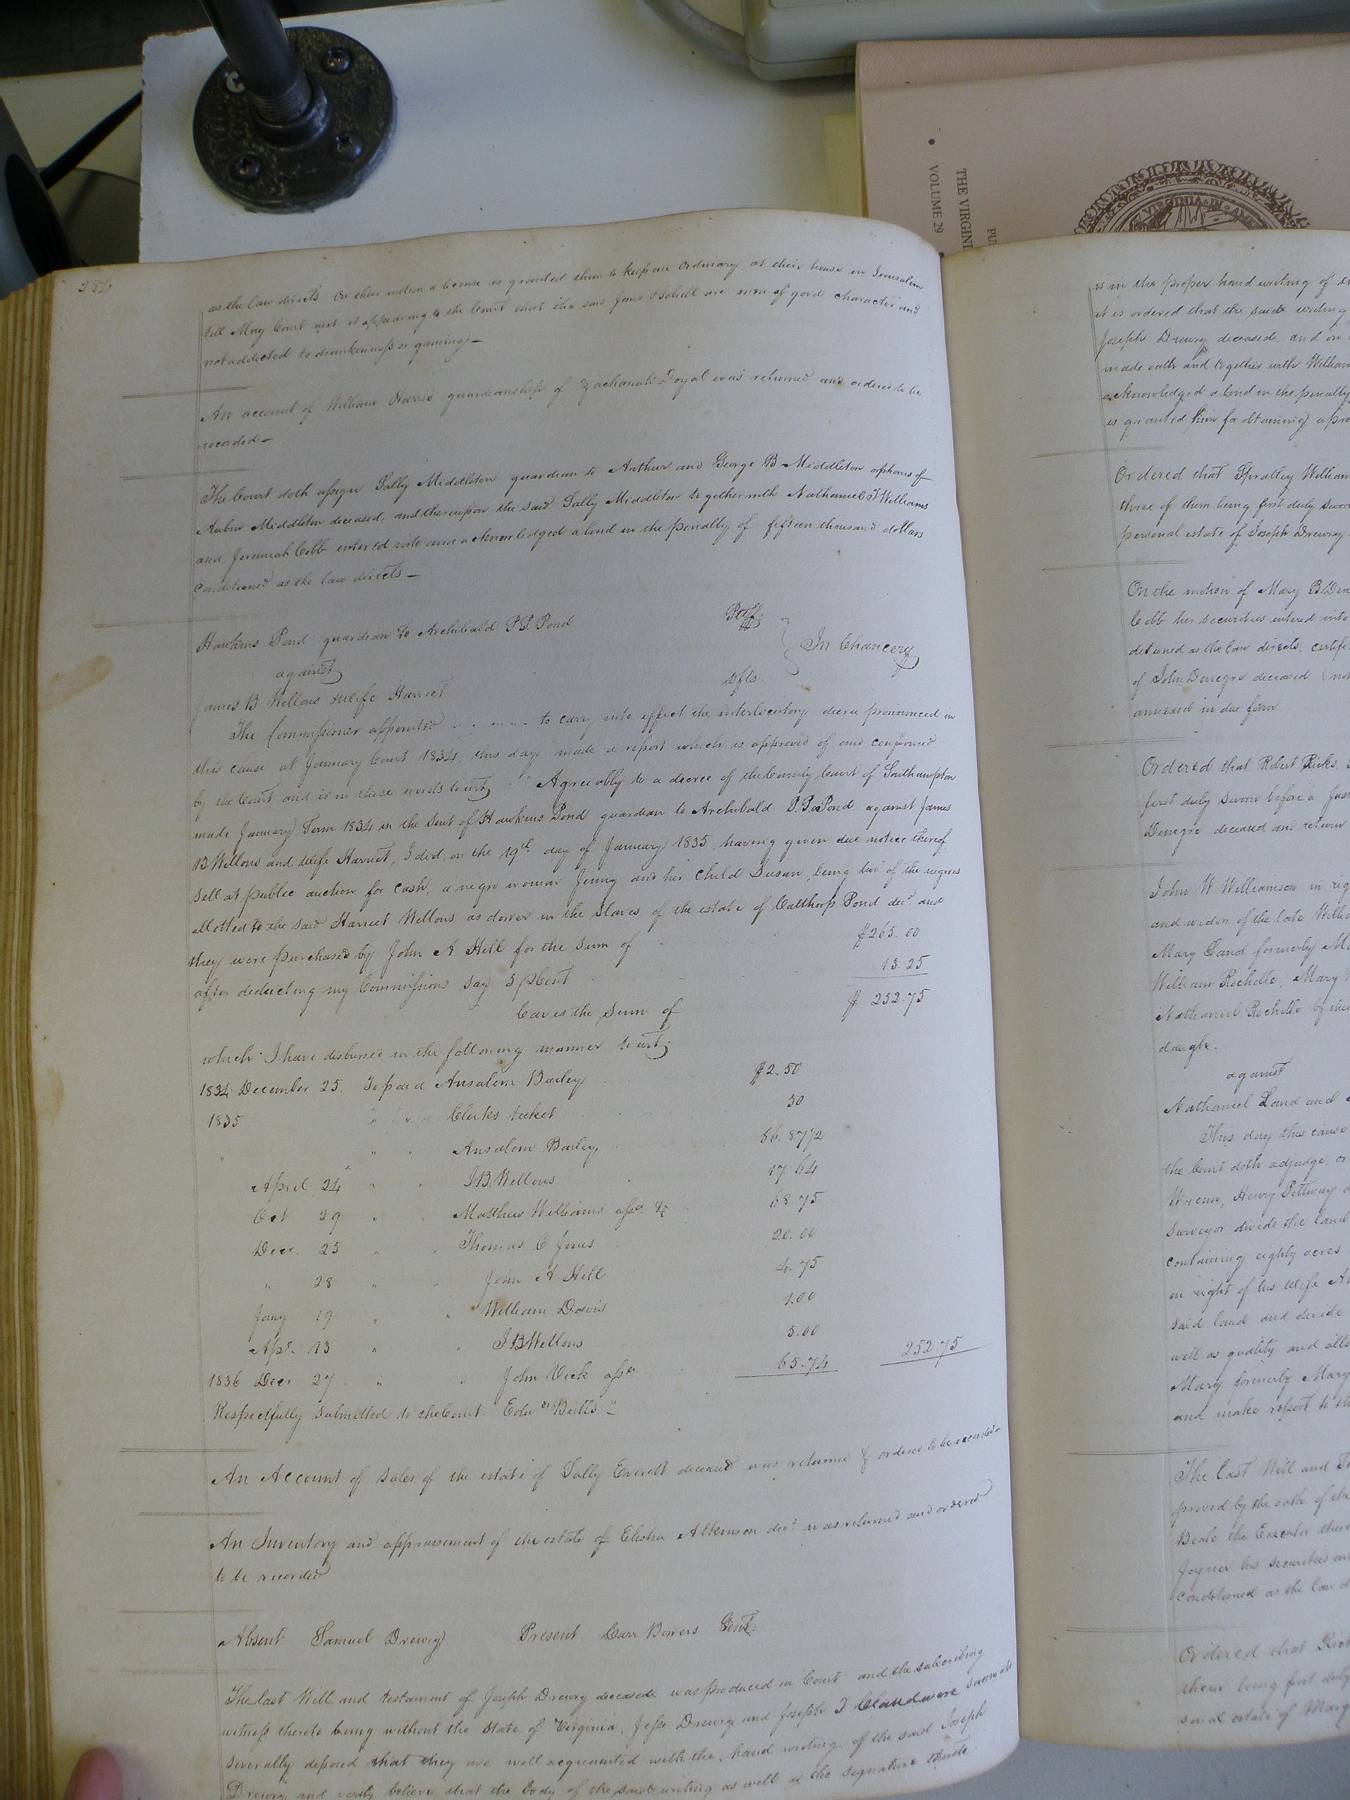 284
as the law directs On their motion a license is granted them to keep an Ordinary at their house in Jerusalem
till May Court next it appearing to the Court that the said Jones & are men of good character and
not addicted to drunkenness or gaming—
An account of William guardianship of was returned and ordered to be
recorded—
The Court doth assign Sally Middleton guardian to Arthur and George B Middleton orphans of
Middleton deceased, and thereupon the said Sally Middleton together with Nathaniel T Williams
and Jeremiah Cobb entered into and acknowledged a bond in the penalty of fifteen thousand dollars
conditioned as the law directs—
Hawkins Pond guardian to Archibald P. P. Pond Pltff.
against In Chancery
James B Wellons & wife Harriet Dfts.
The Commissioner appointed to carry into effect the interlocutory decree pronounced in
this cause at January Court 1834, this day made a report which is approved of and confirmed
by the Court and is in these words to wit; "Agreeably to a decree of the County Court of Southampton
made January Term 1834 in the suit of Hawkins Pond guardian to Archibald P. P. Pond against James
B Wellons and wife Harriet, I did, on the 19th day of January 1835, having given due notice thereof
sell at public auction for cash, a negro woman Jenny and her child Susan, being two of the negroes
allotted to the said Harriet Wellons as dower in the slaves of the estate of Calthorp Pond decd and
they were purchased by John A Hill for the sum of $265.00
after deducting my Commissions say 5 pCent 13.25
leaves the sum of $252.75
which I have disbursed in the following manner to wit;
1834 December 25. To paid Ansalem Bailey $2.50
1835 " " Clerks ticket 30
" " " Ansalem Bailey, 66.87½
April 24 " " J. B. Wellons 17.64
Oct 29 " " Matthew Williams assee &c 68.75
Decr 25 " " Thomas C Jones 20.00
" 28 " " John A Hill 4.75
Jany 19 " " William Davis 1.00
Apl. 13 " " J B Wellons 5.00
1836 Decr 27 " " John Vick assee 65.74 252.75
Respectfully submitted to the Court. Edwd Butts"—
An Account of sales of the estate of Sally Everett deceased was returned & ordered to be recorded—
An Inventory and appraisement of the estate of Elisha Atkinson decd was returned and ordered
to be recorded
Absent Samuel Drewry Present Carr Bowers Gent.
The last Will and testament of Joseph Drewry deceased was produced in Court and the subscribing
witness thereto being without the State of Virginia, Jesse Drewry and Joseph T Claud were sworn and
severally deposed that they are well acquainted with the hand writing of the said Joseph
Drewry and verily believe that the body of the said writing as well as the signature thereto
is in the proper hand writing of
it is ordered that the said writing
Joseph Drewry deceased, and on
made oath and together with William
acknowledged a bond in the penalty
is granted him for obtaining a
Ordered that Spratley William
three of them being first duly sworn
personal estate of Joseph Drewry
On the motion of Mary B Den
Cobb her securities entered into
ditioned as the law directs, certifi
of John Denegre deceased
annexed in due form
Ordered that Robert Ricks,
first duly sworn before a Jus
Denegre deceased and return
John W Williamson in rig
and widow of the late Willi
Mary Land formerly M
William Rochelle, Mary
Nathaniel Rochelle by the
daugh.
against
Nathaniel Land and
This day this cause
the Court doth adjudge, or
Wrenn, Henry Pettway
Surveyor divide the land
containing eighty acres
in right of his wife
said land and divide
well as quality and all
Mary formerly Mary
and make report to th
The last Will and
proved by the oath of the
Beale the Executor there
Joyner his securities en
conditioned as the law d
Ordered that Rich
them being first duly
sonal estate of Marg
THE VIRGINI
VOLUME 29
PU
VIRGINIA IN AM